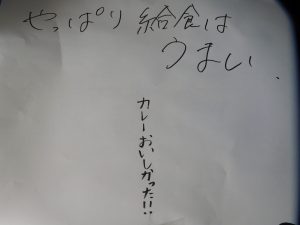 やっぱり給食は
うまい.
カレーおいしかった!!